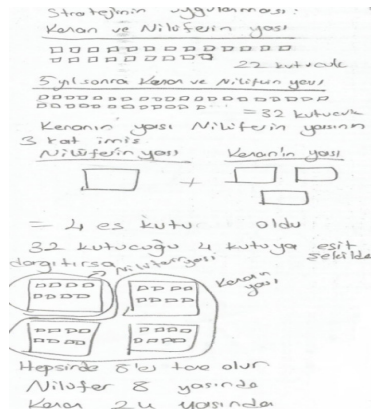 Stratejinin uygulanması:
Kenan ve Nilüferin yaşı
22 kutucuk
5 yıl sonra Kenan ve Nilüferin yaşı
= 32 kutucuk
Kenanın yaşı Nilüferin yaşının
3 kat imiş
Nilüferin yaşı Kenan'ın yaşı
+
= 4 eş kutu oldu
32 kutucuğu 4 kutuya eşit şekilde
dağıtırsa
Nilüferin yaşı
Kenanın yaşı
Hepsinde 8'er tane olur
Nilüfer 8 yaşında
Kenan 24 yaşında